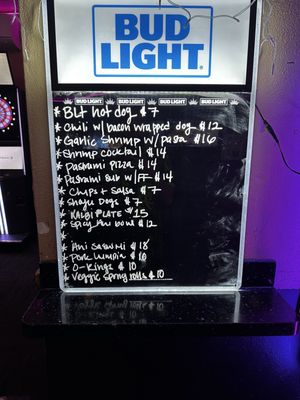 BUD
LIGHT
BUD LIGHT BUD LIGHT BUD LIGHT BUD LIGHT
* BLT hot dog $7
* Chili w/ bacon wrapped dog $12
* Garlic Shrimp w/ pasta $16
* Shrimp cocktail $14
* Pastrami pizza $14
* Pastrami sub w/ FF $14
* Chips + salsa $7
* Shoyu Dogs $7
* KALBI PLATE $15
* Spicy Ahi bowl $12
*
* Ahi Sashimi $18
* Pork Lumpia $10
* O-Rings $10
* Veggie Spring rolls $10